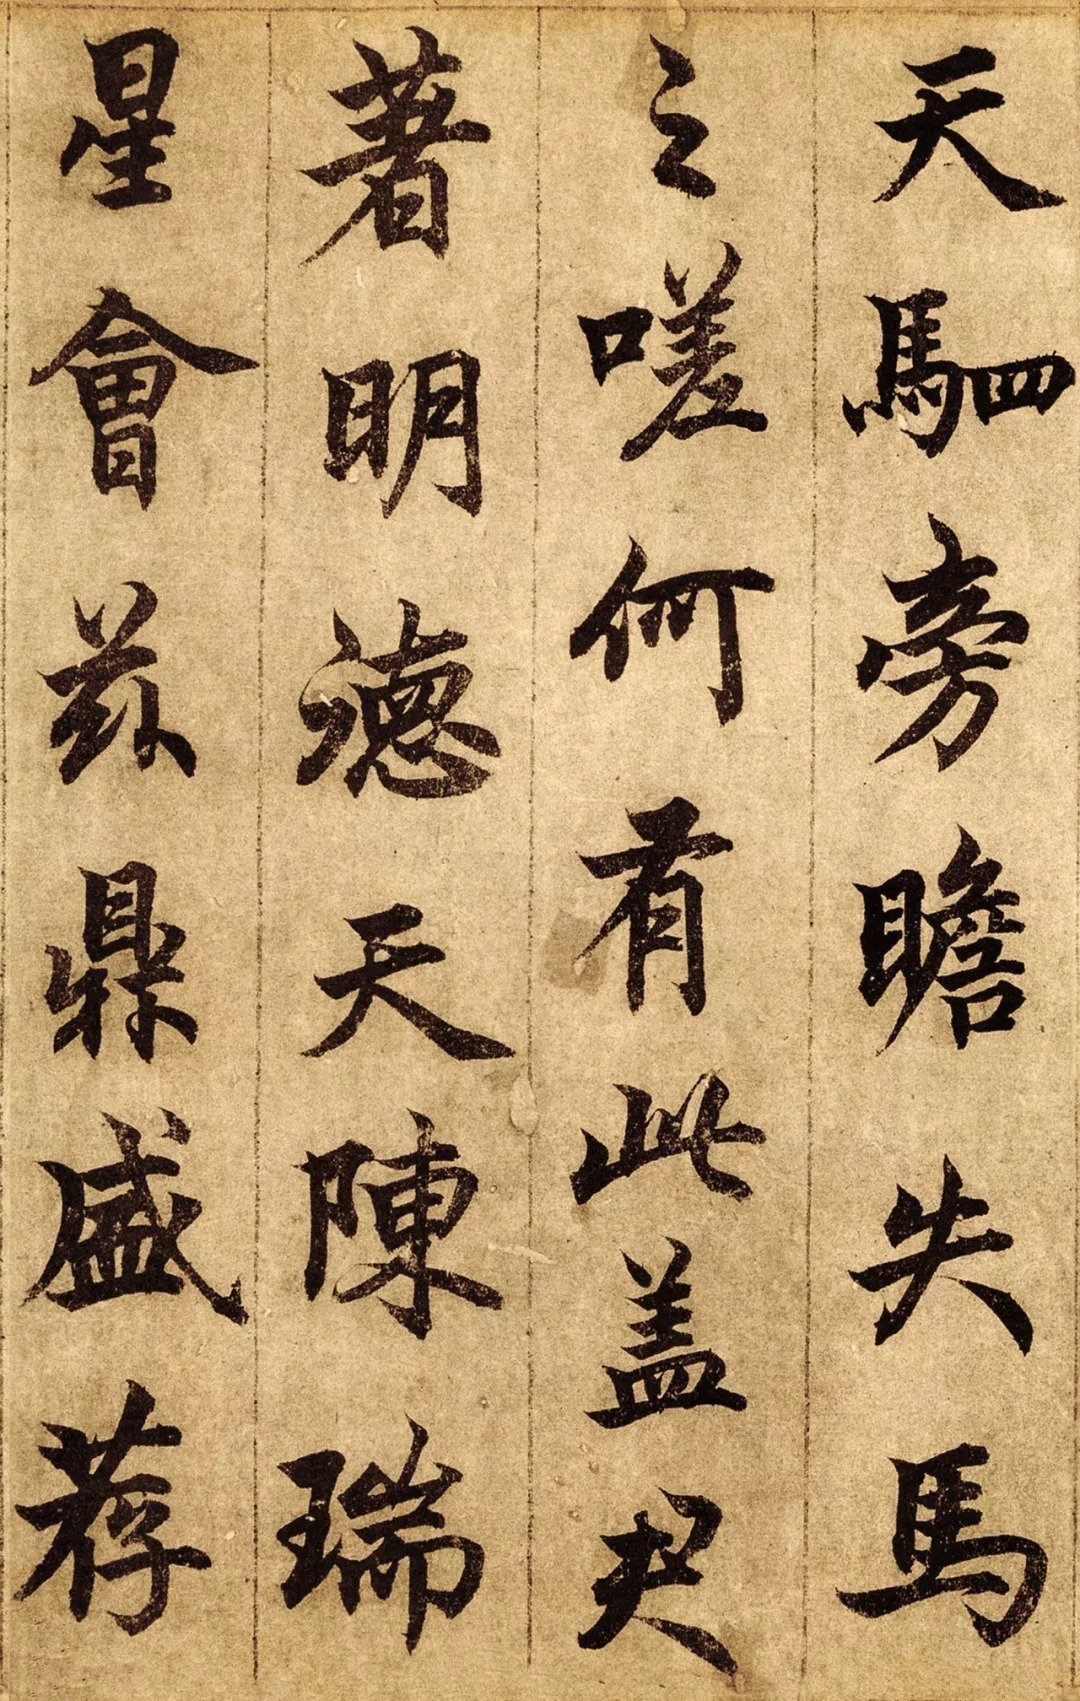 天駟旁瞻失馬
之嗟何有此盖契
著明德天陳瑞
星會茲鼎盛荐